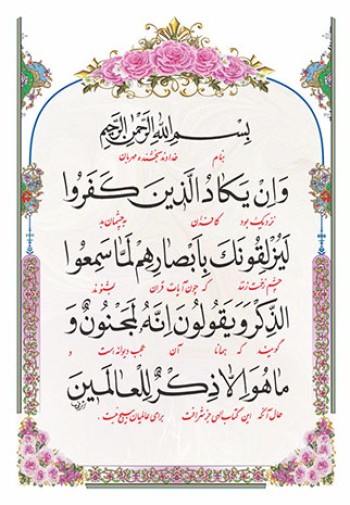 بِسْمِ اللهِ الرَّحْمٰنِ الرَّحِیمِ
بنام خداوند بخشنده مهربان
وَاِنْ یَكَادُ الَّذینَ كَفَرُوا
نزدیک بود کافران به چشمان بد
لَیُزْلِقُونَكَ بِاَبْصارِهِمْ لَمَّا سَمِعُوا
چشم زخمت زنند که چون آیات قرآن بشنوند
الذِّكْرَ وَیَقُولُونَ اِنَّهُ لَمَجْنُونٌ وَ
گویند که همانا آن عجب دیوانه است و
ما هُوَ اِلاّ ذِكْرٌ لِلْعالَمینَ
حال آنکه این کتاب الهی جز شرافت برای عالمیان هیچ نیست.